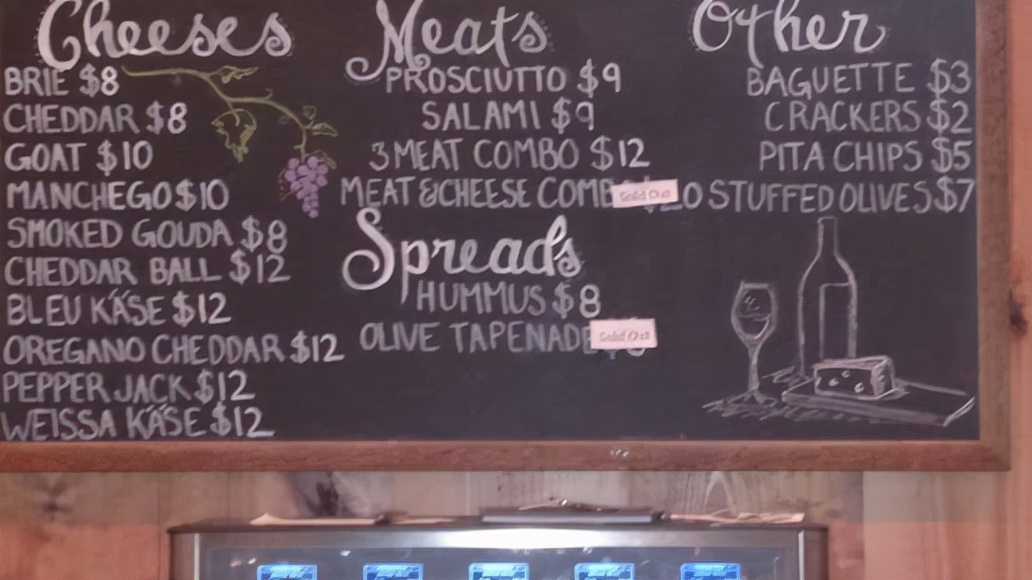 Cheeses
BRIE $8
CHEDDAR $8
GOAT $10
MANCHEGO $10
SMOKED GOUDA $8
CHEDDAR BALL $12
BLEU KÄSE $12
OREGANO CHEDDAR $12
PEPPER JACK $12
WEISSA KÄSE $12
Meats
PROSCIUTTO $9
SALAMI $9
3 MEAT COMBO $12
MEAT & CHEESE COMB
Sold Out
Spreads
HUMMUS $8
OLIVE TAPENADE
Sold Out
Other
BAGUETTE $3
CRACKERS $2
PITA CHIPS $5
STUFFED OLIVES $7